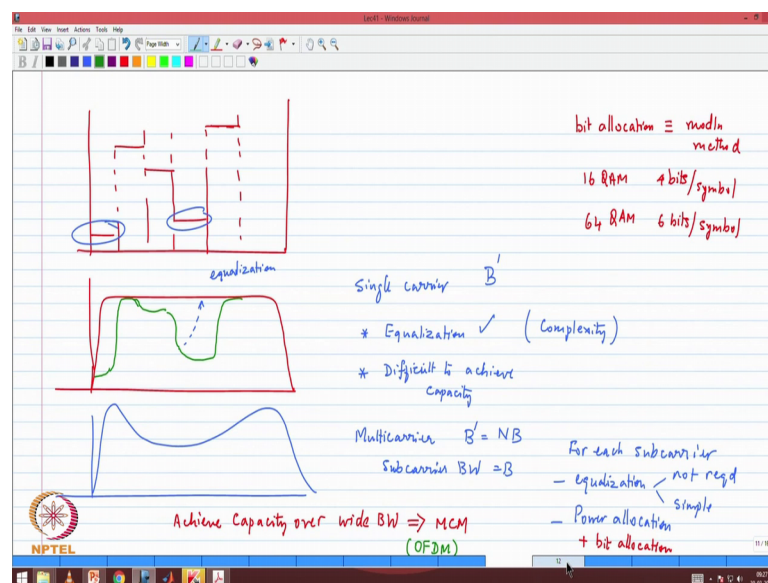 Lec41 - Windows Journal
File Edit View Insert Actions Tools Help
Page Width
B I
bit allocation ≡ modln
method
16 QAM 4 bits/symbol
64 QAM 6 bits/symbol
equalization
Single carrier B'
* Equalization ✓ (Complexity)
* Difficult to achieve
capacity
Multicarrier B' = NB
Subcarrier BW = B
For each subcarrier
- equalization not reqd
simple
- Power allocation
+ bit allocation
Achieve Capacity over wide BW ⇒ MCM
(OFDM)
NPTEL
12
09:27